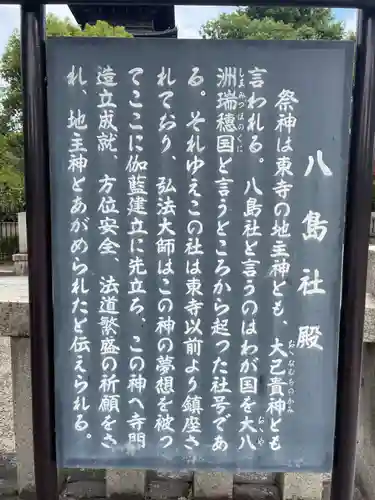 八島社殿
祭神は東寺の地主神とも、大己貴神とも
おおなむちのかみ
言われる。八島社と言うのはわが国を大八
おおや
洲瑞穗国と言うところから起った社号であ
しまみづほのくに
る。それゆえこの社は東寺以前より鎮座さ
れており、弘法大師はこの神の夢想を被つ
てここに伽藍建立に先立ち、この神へ寺門
造立成就、方位安全、法道繁盛の祈願をさ
れ、地主神とあがめられたと伝えられる。